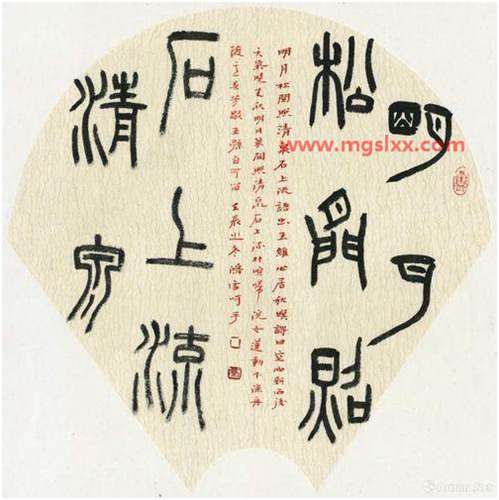 明月
松間照
清泉
石上流
明月松間照清泉石上流語出王維山居秋暝詩曰空山新雨後
天氣晚來秋明月松間照清泉石上流竹喧歸浣女蓮動下漁舟
隨意春芳歇王孫自可留 壬辰之冬
www.mgslxx.com